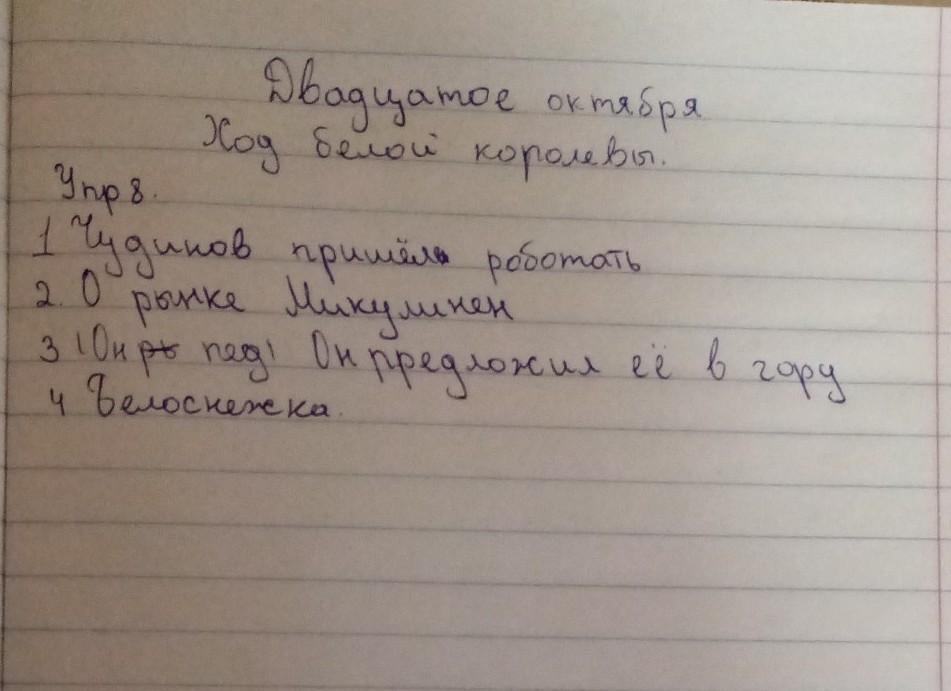 Двадцатое октября
Ход белой королевы.
Упр 8.
1 Чудинов пришёл роботать
2. О рынке Микулинен
3 (Он пед) Он предложил её в гору
4 Белоснежка.